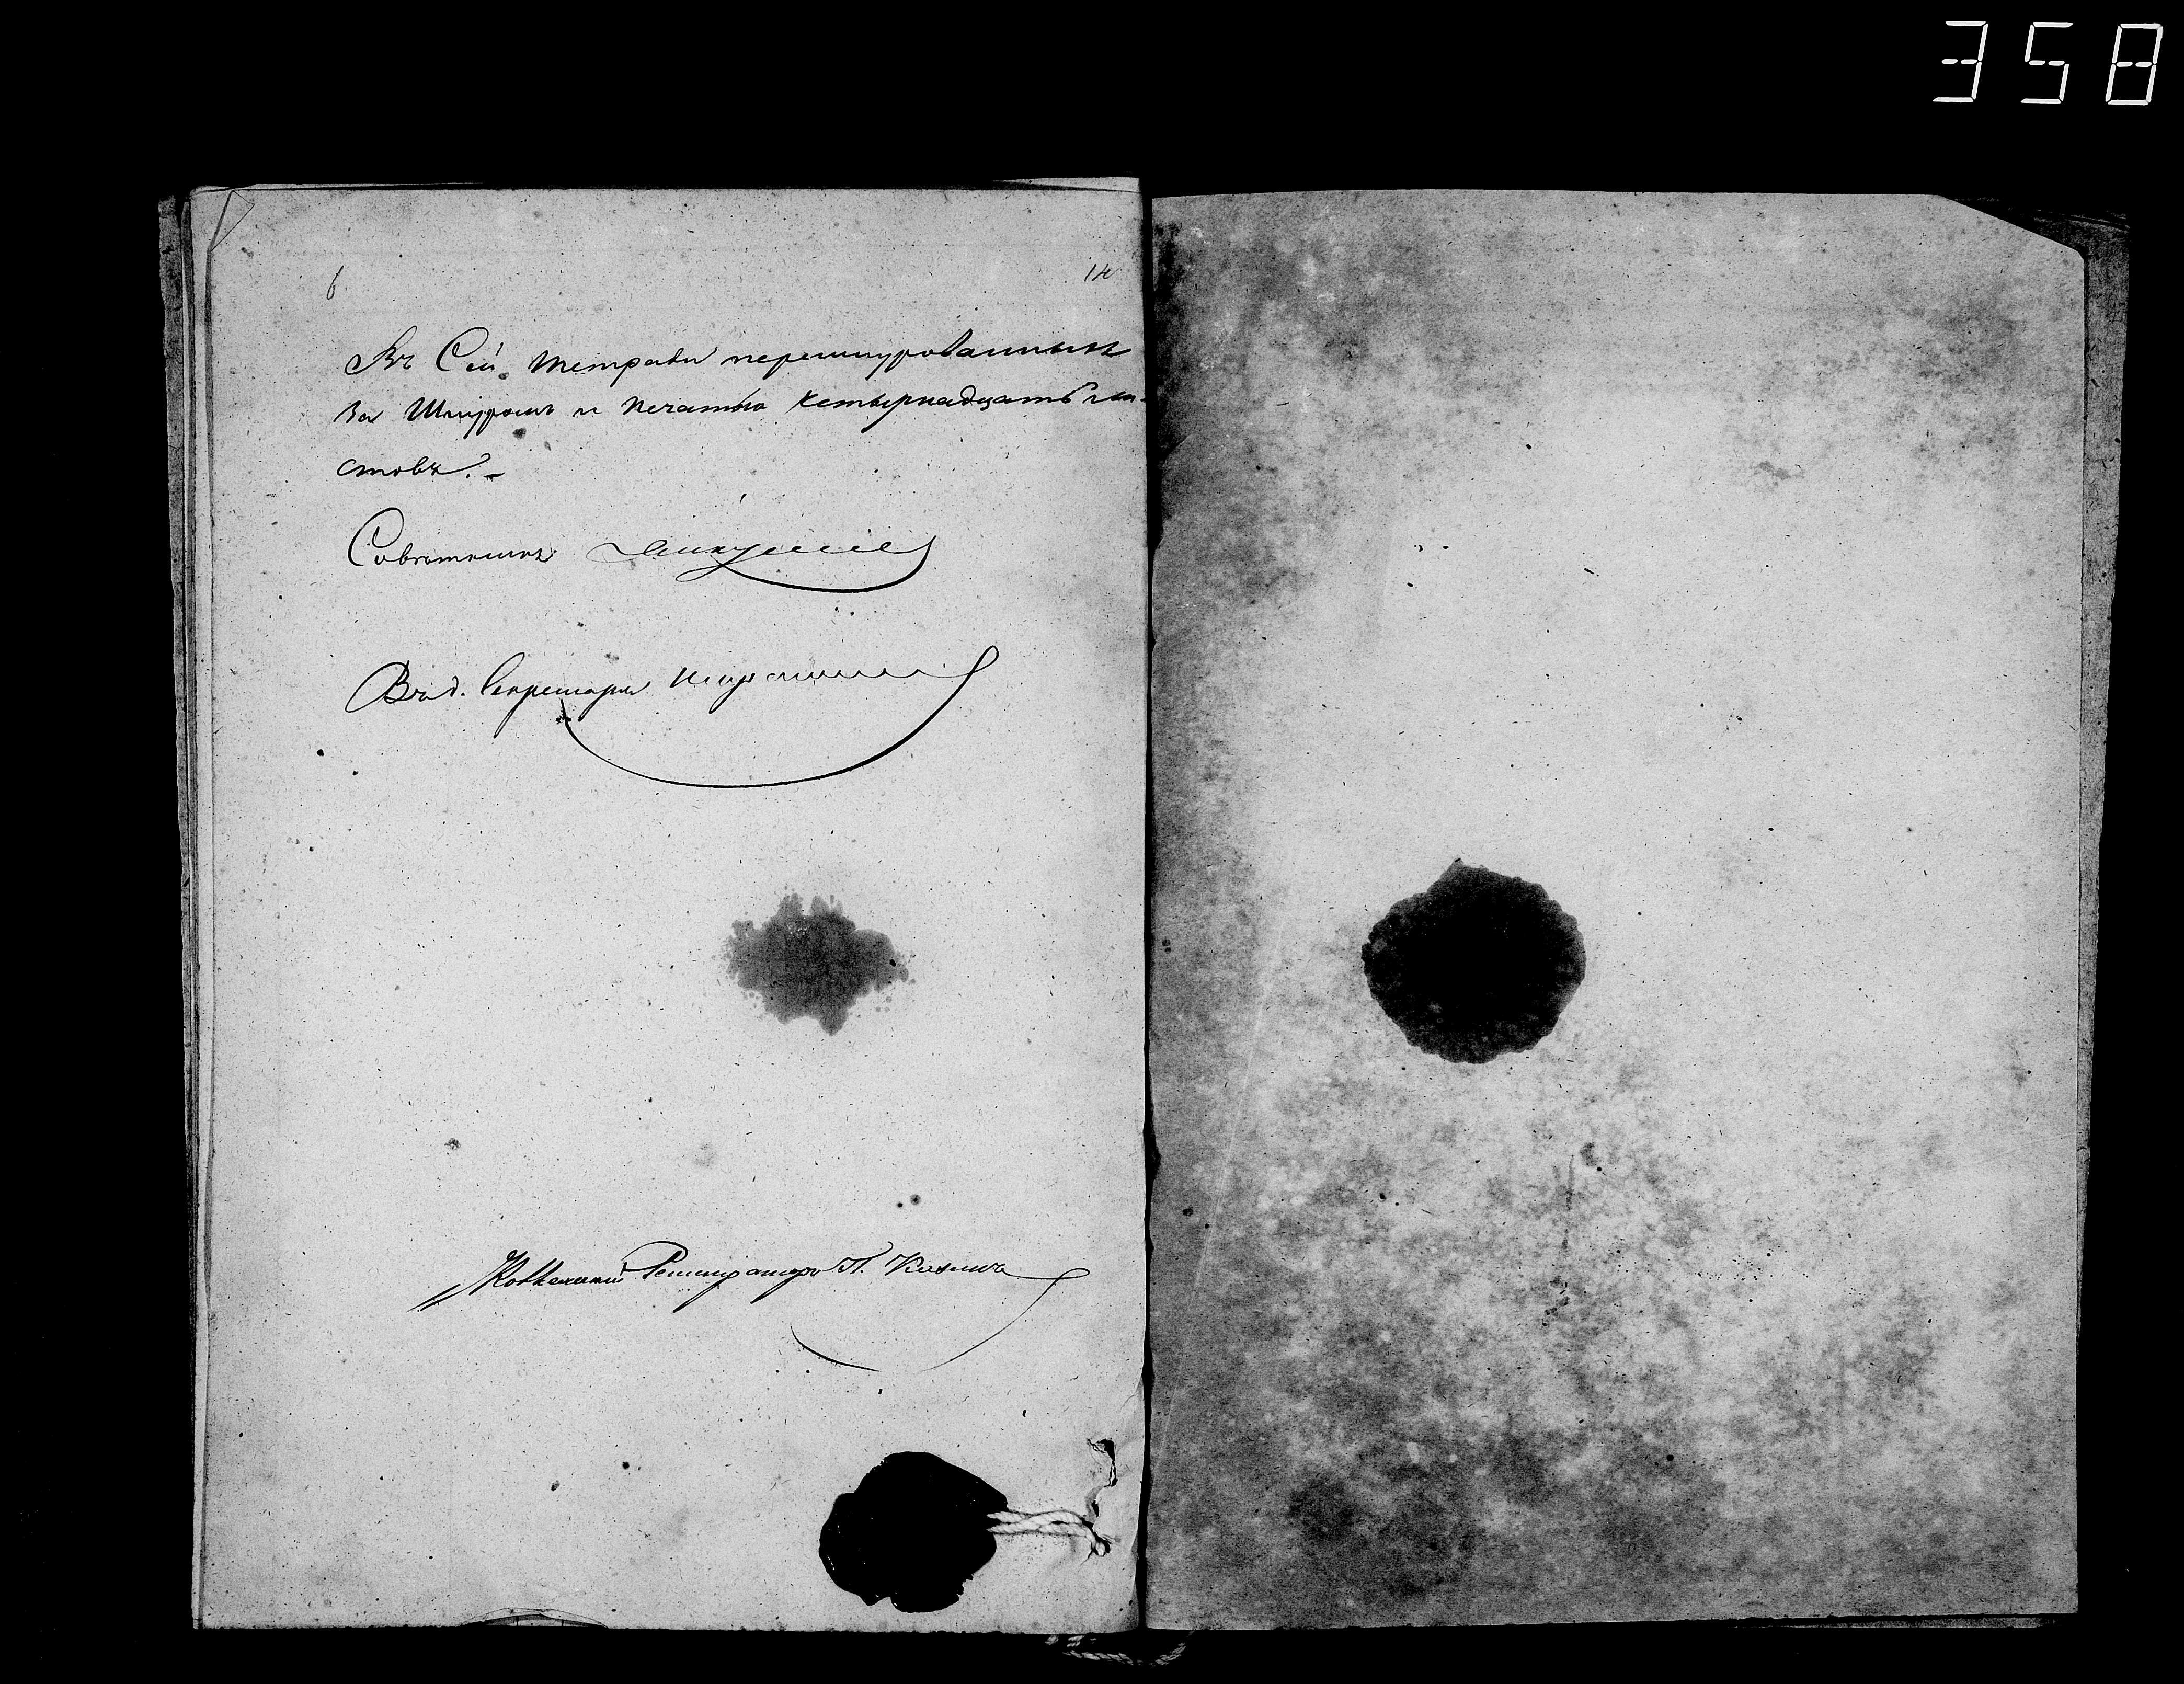 358
14
Въ Сей тетради перешнурованныхъ
за Шнуромъ и печатью четырнадцать ли-
стовъ. -
Советникъ
Секретаря
Коллежский Регистраторъ П.